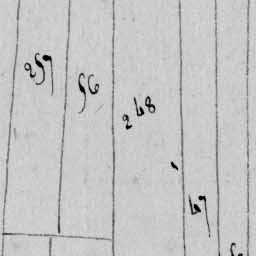 257
56
268
67